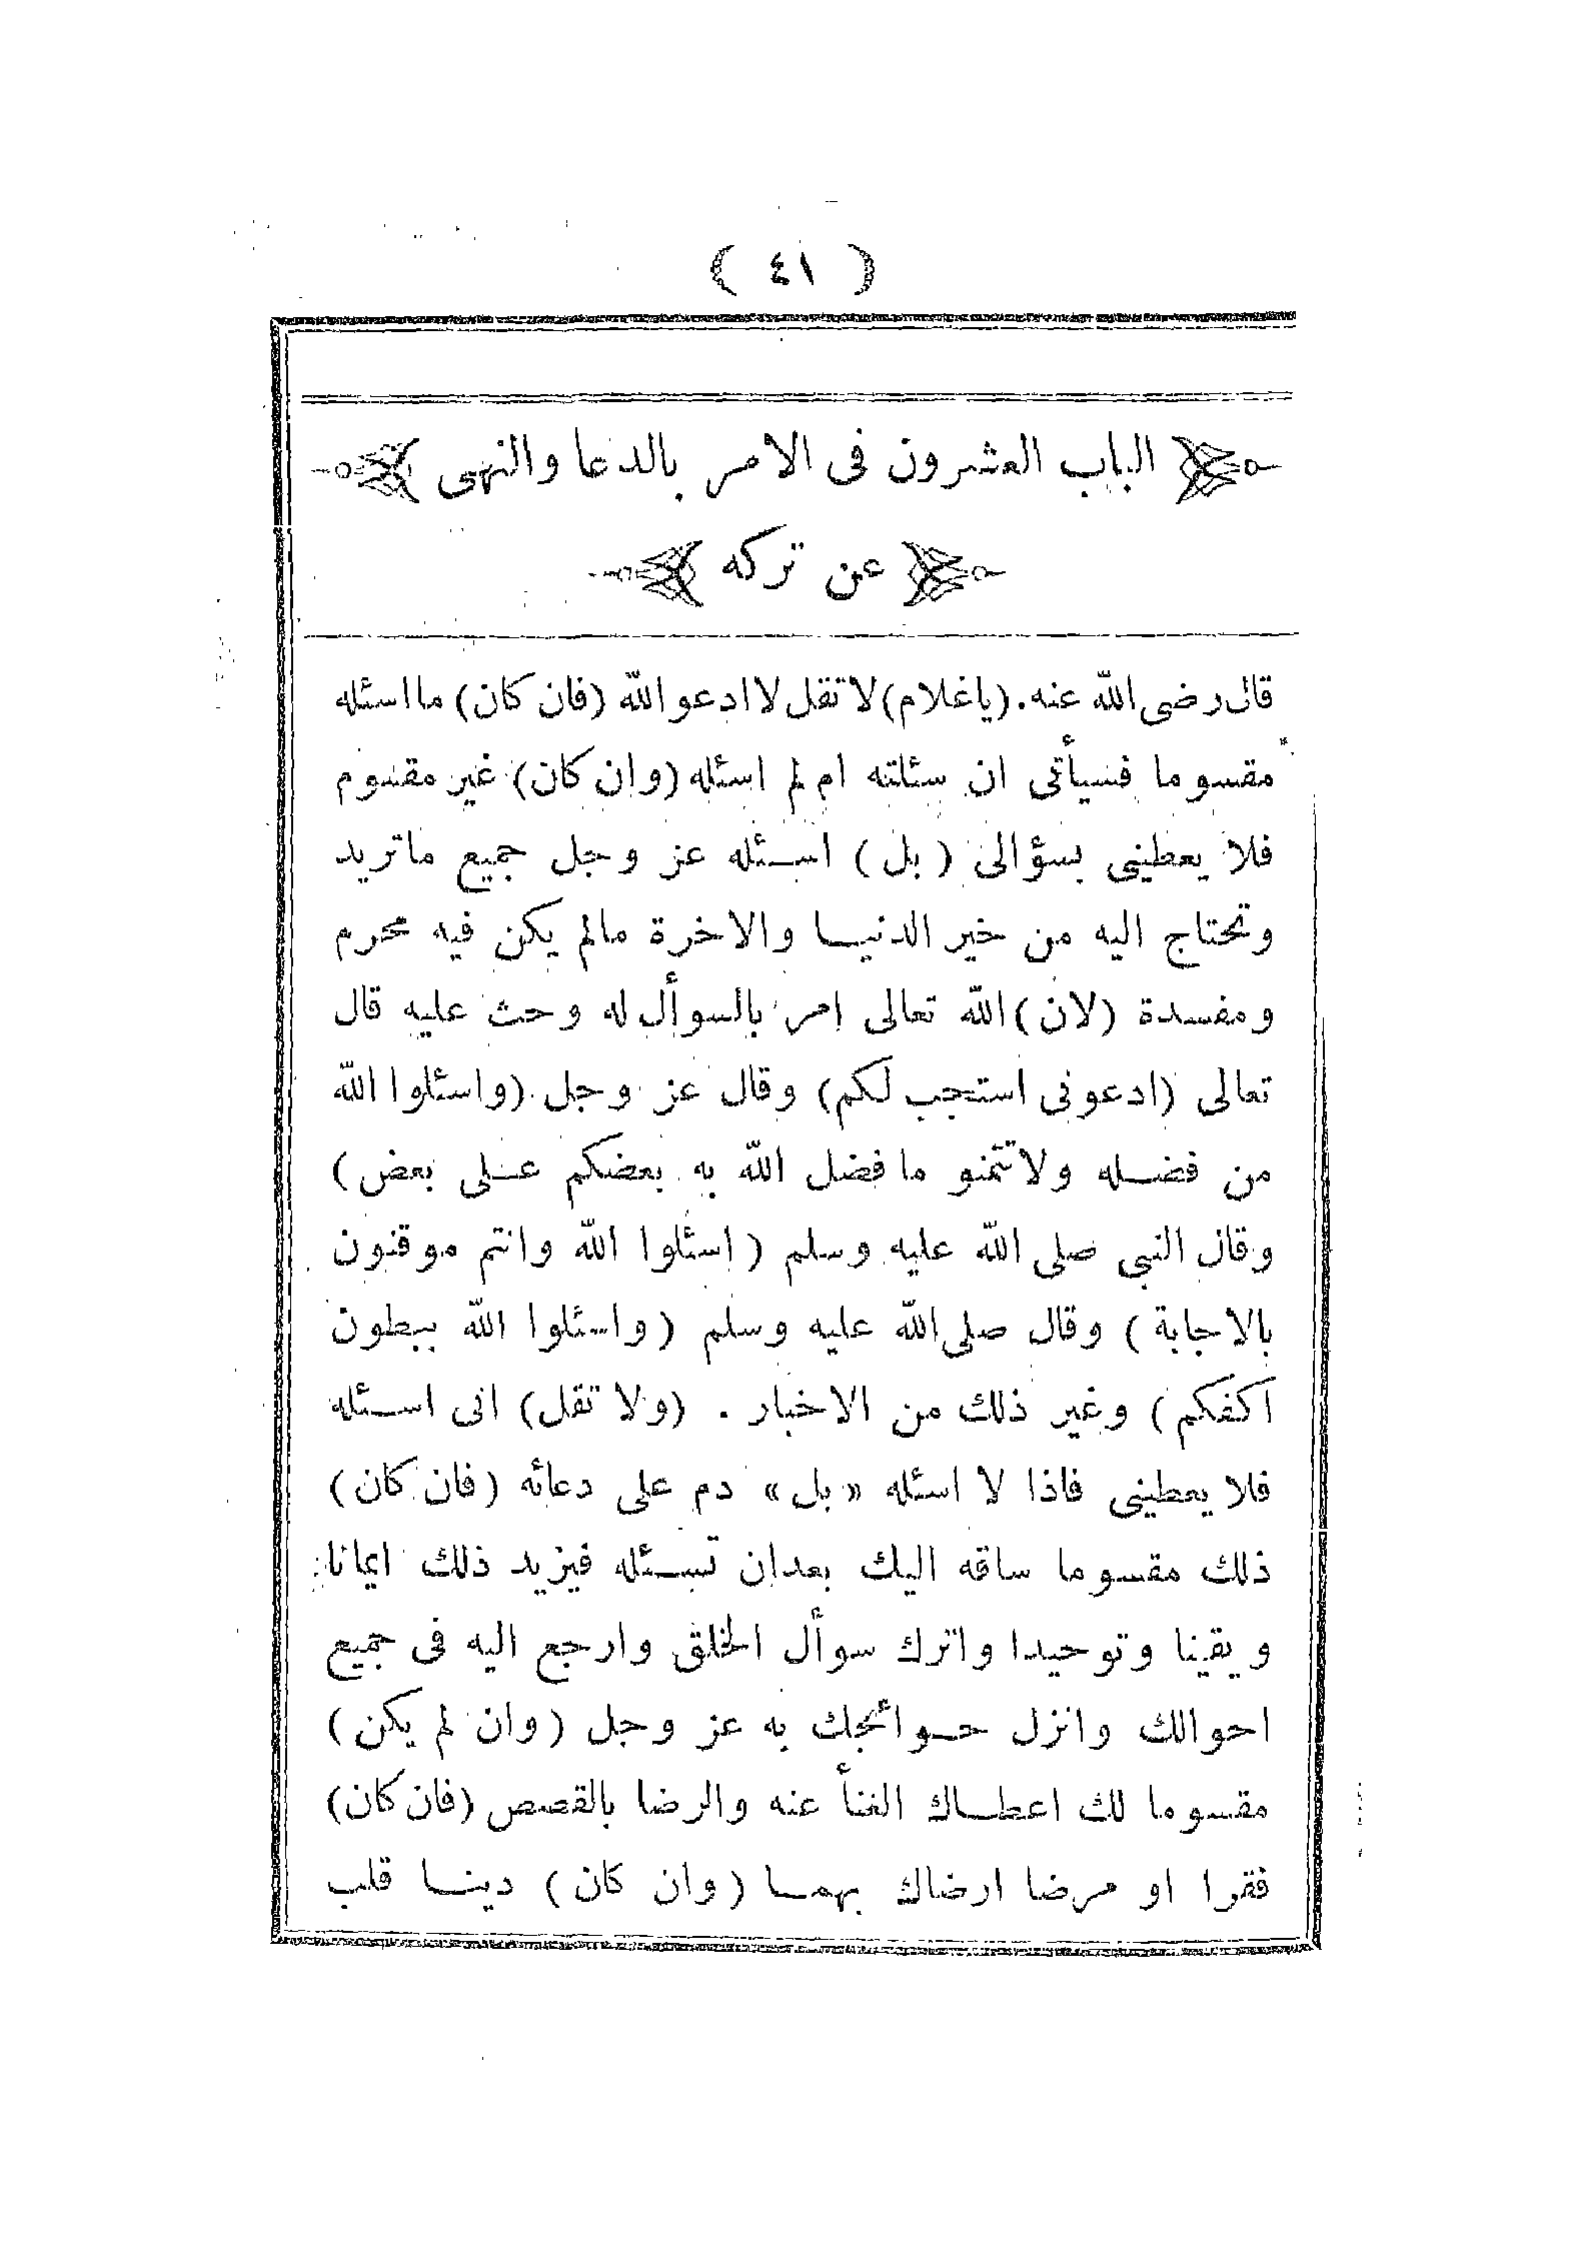 ( ٤١ )
الباب العشرون فى الامر بالدعا والنهى
عن تركه
قال رضى الله عنه. (ياغلام) لا تقل لا ادعو الله (فان كان) ما اسئله
مقسوما فسيأتى ان سئلته ام لم اسئله (وان كان) غير مقسوم
فلا يعطينى بسؤالى ( بل ) اسئله عز وجل جميع ماتريد
وتحتاج اليه من خير الدنيا والاخرة مالم يكن فيه محرم
ومفسدة (لان) الله تعالى امر بالسوأل له وحث عليه قال
تعالى (ادعونى استجب لكم) وقال عز وجل (واسئلوا الله
من فضله ولا تتمنو ما فضل الله به بعضكم على بعض )
وقال النبى صلى الله عليه وسلم ( اسئلوا الله وانتم موقنون
بالاجابة ) وقال صلى الله عليه وسلم ( واسئلوا الله ببطون
اكفكم ) وغير ذلك من الاخبار . (ولا تقل) انى اسئله
فلا يعطينى فاذا لا اسئله « بل » دم على دعائه ( فان كان )
ذلك مقسوما ساقه اليك بعدان تسئله فيزيد ذلك ايمانا
ويقينا وتوحيدا واترك سوأل الخلق وارجع اليه فى جميع
احوالك وانزل حوائجك به عز وجل ( وان لم يكن )
مقسوما لك اعطاك الغنأ عنه والرضا بالقصص (فان كان)
فقرا او مرضا ارضاك بهما ( وان كان ) دينا قلب